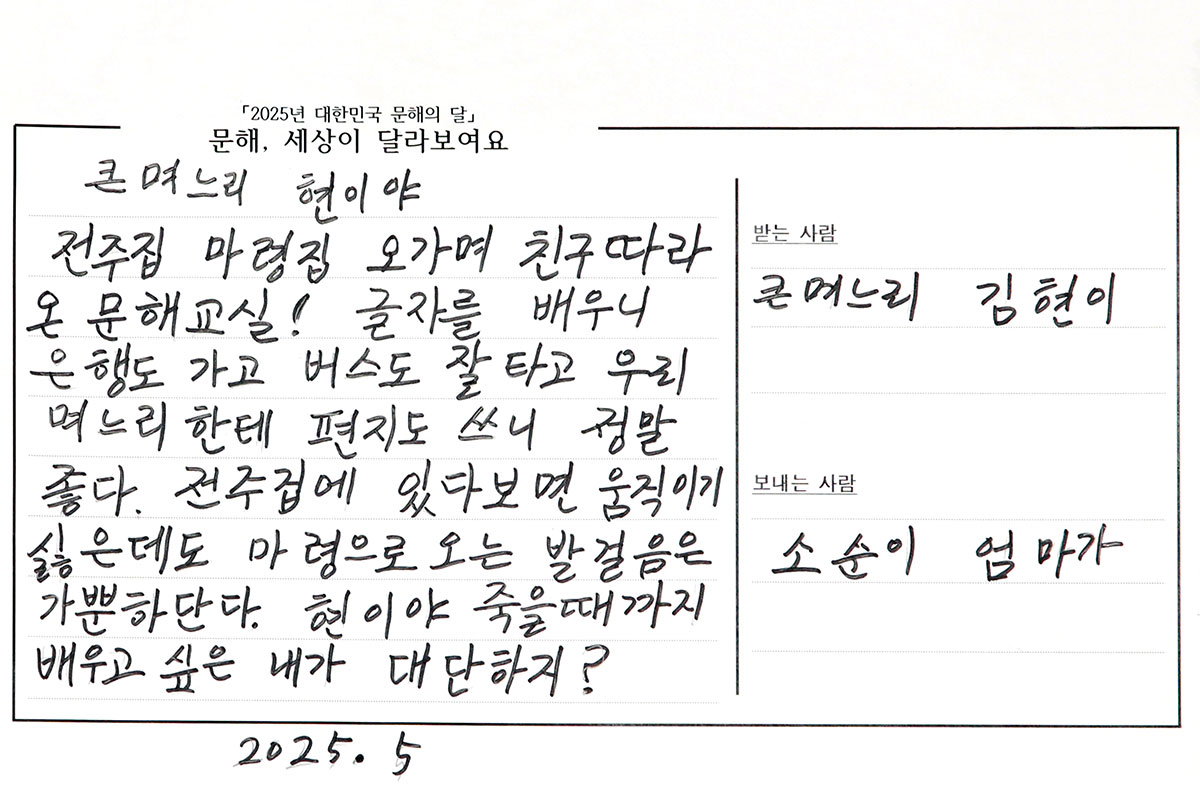 「2025년 대한민국 문해의 달」
문해, 세상이 달라보여요
큰며느리 현이야
전주집 마령집 오가며 친구따라
온 문해교실! 글자를 배우니
은행도 가고 버스도 잘타고 우리
며느리한테 편지도 쓰니 정말
좋다. 전주집에 있다보면 움직이기
싫은데도 마령으로 오는 발걸음은
가뿐하단다. 현이야 죽을때까지
배우고 싶은 내가 대단하지?
2025. 5
받는 사람
큰며느리 김현이
보내는 사람
소순이 엄마가